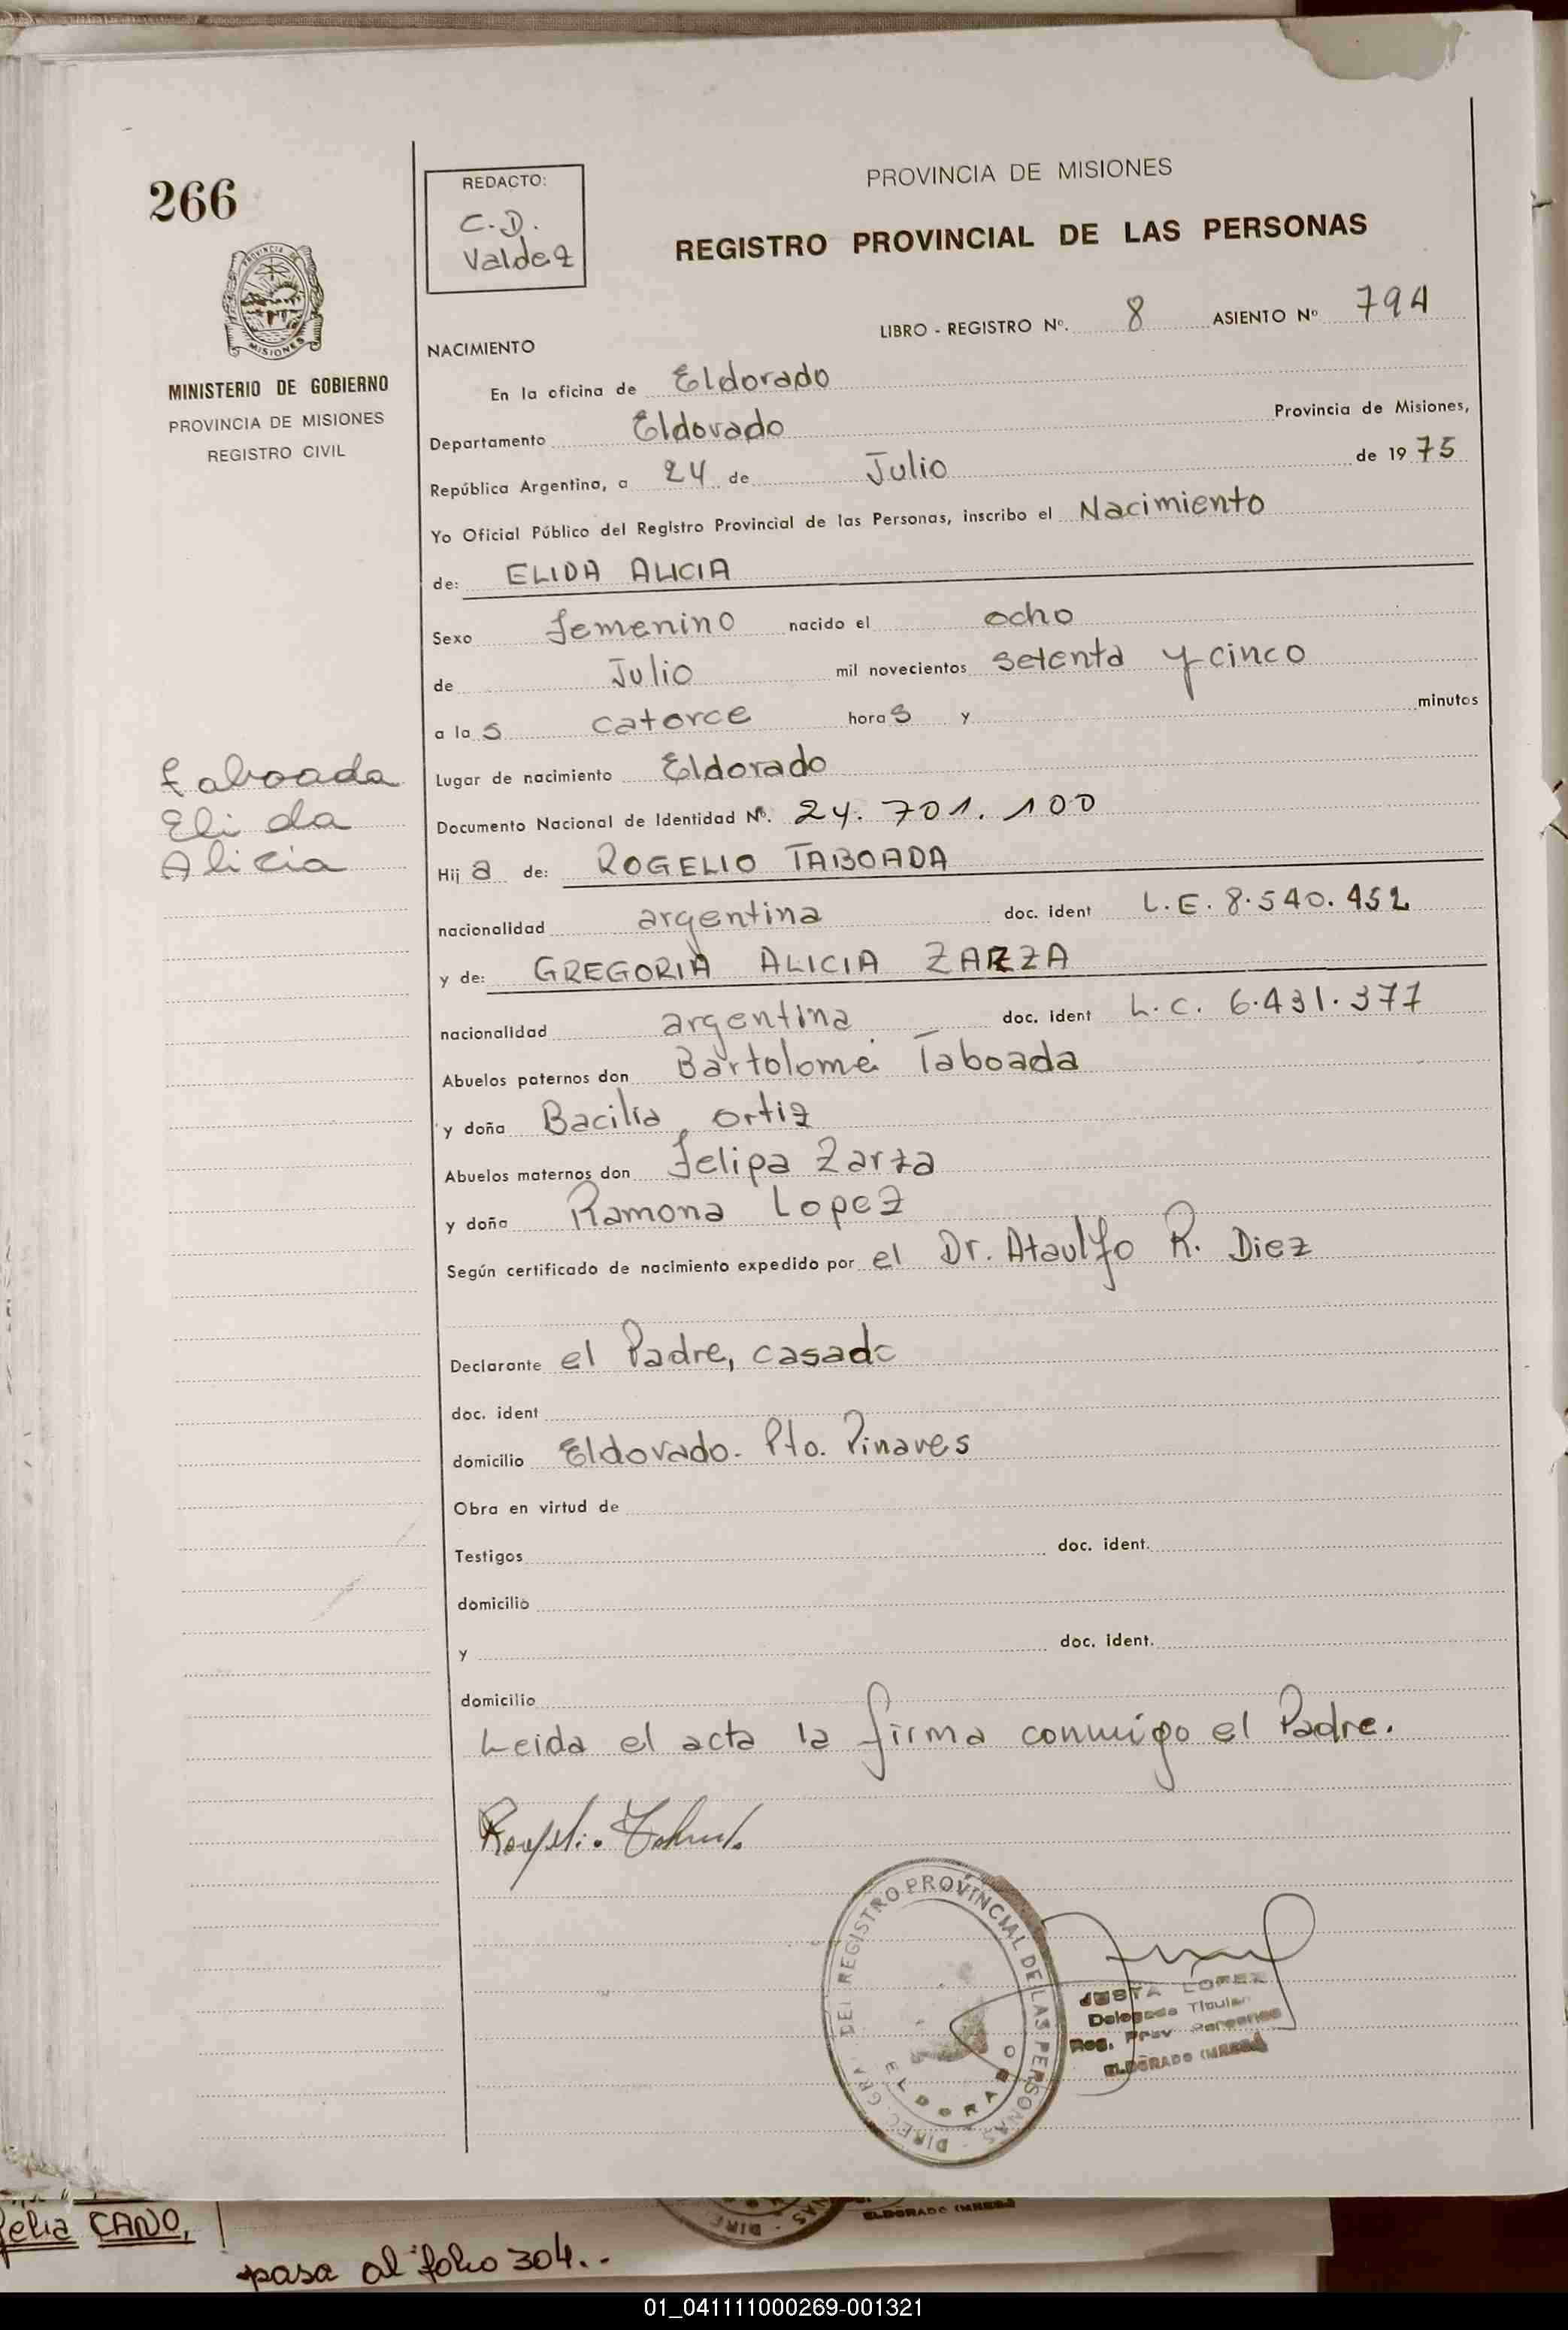 266
PROVINCIA
MISIONES
MINISTERIO DE GOBIERNO
PROVINCIA DE MISIONES
REGISTRO CIVIL
REDACTO:
C.D.
Valdez
PROVINCIA DE MISIONES
REGISTRO PROVINCIAL DE LAS PERSONAS
LIBRO - REGISTRO Nº. 8 ASIENTO Nº 794
NACIMIENTO
En la oficina de Eldorado
Departamento Eldorado Provincia de Misiones,
República Argentina, a 24 de Julio de 1975
Yo Oficial Público del Registro Provincial de las Personas, inscribo el Nacimiento
de: ELIDA ALICIA
Sexo femenino nacido el ocho
de Julio mil novecientos setenta y cinco
a las catorce horas y minutos
Lugar de nacimiento Eldorado
Taboada
Elida
Alicia
Documento Nacional de Identidad Nº. 24.701.100
Hija de: ROGELIO TABOADA
nacionalidad argentina doc. ident L.E. 8.540.452
y de: GREGORIA ALICIA ZARZA
nacionalidad argentina doc. ident L.C. 6.431.377
Abuelos paternos don Bartolomé Taboada
y doña Bacilia Ortiz
Abuelos maternos don Felipa Zarza
y doña Ramona Lopez
Según certificado de nacimiento expedido por el Dr. Ataulfo R. Diez
Declarante el Padre, casado
doc. ident
domicilio Eldorado. Pto. Pinares
Obra en virtud de
Testigos doc. ident.
domicilio
y doc. ident.
domicilio
Leida el acta la firma conmigo el Padre.
DIREC. GRAL. DEL REGISTRO PROVINCIAL DE LAS PERSONAS
ELDORADO
JUSTA LOPEZ
Delegada Titular
Reg. Prov. Personas
ELDORADO (MNES.)
CANO,
pasa al folio 304..
ELDORADO (MNES.)
01_041111000269-001321